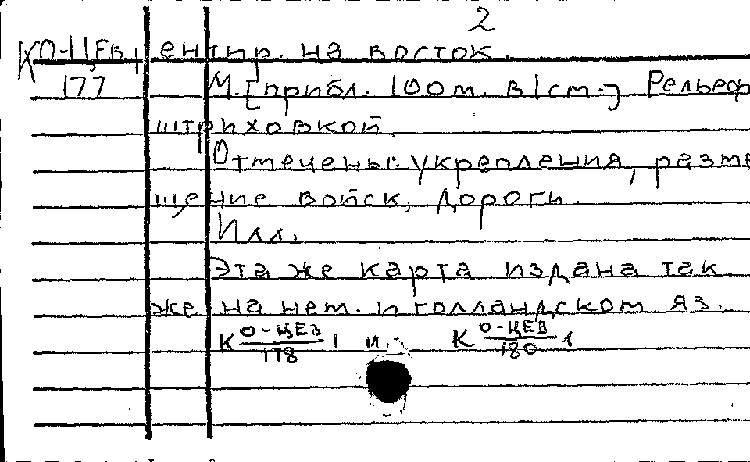 2
К О-ЦЕВ 1 ентир. на восток.
177 М. [прибл. 100 м. в 1 см.] Рельеф
штриховкой.
Отмечены: укрепления, разме
щение войск, дороги.
Илл.
Эта же карта издана так
же на нем. и голландском яз.
К О-ЦЕВ/178 1 и К О-ЦЕВ/180 1